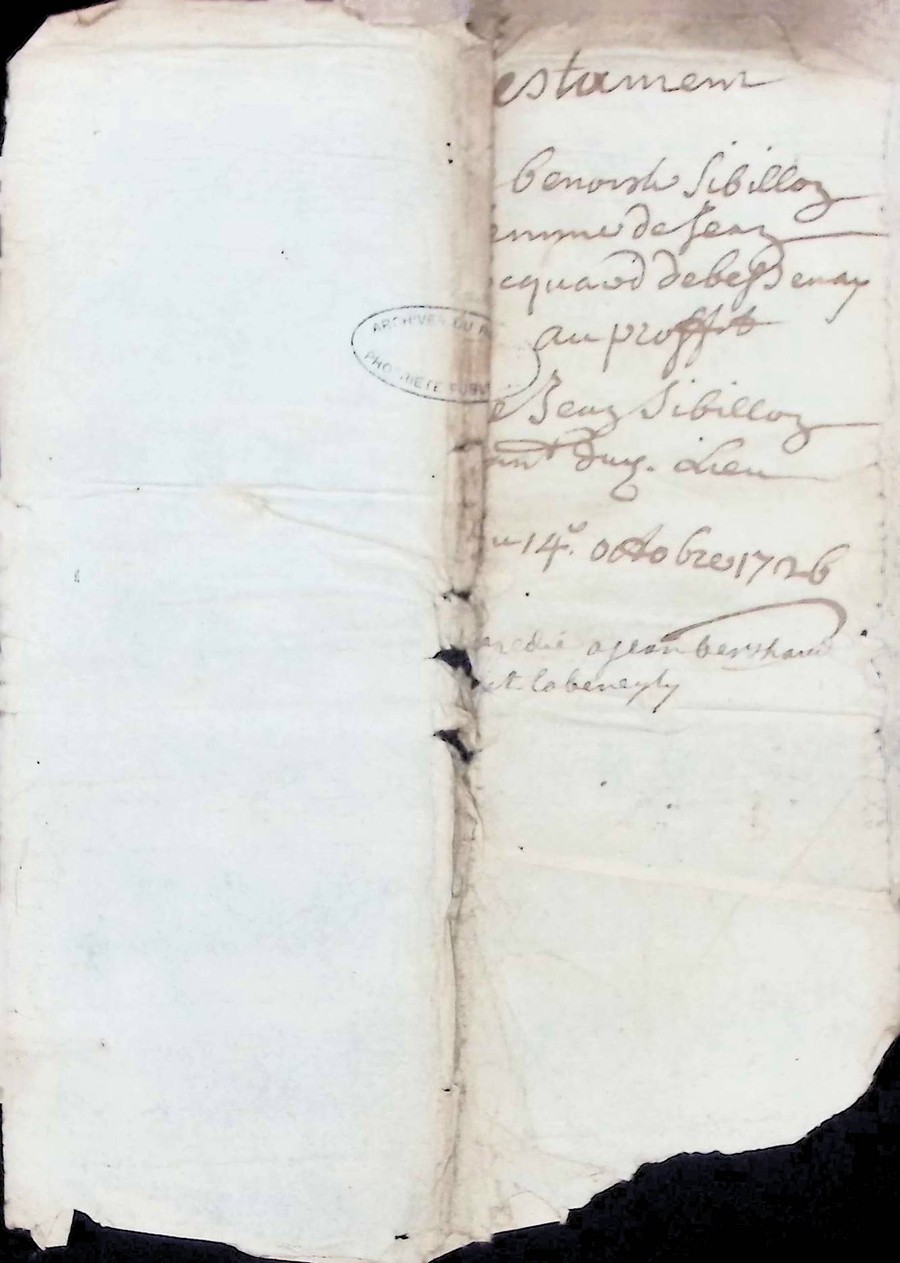 estament
benoiste Sibilloz
emme de Jean
cquard de bessenay
au proffit
e Jean Sibilloz
dud. Lieu
u 14e. octobre 1726
a jean berthaud
ARCHIVES DU R
PROPRIETE PUBL